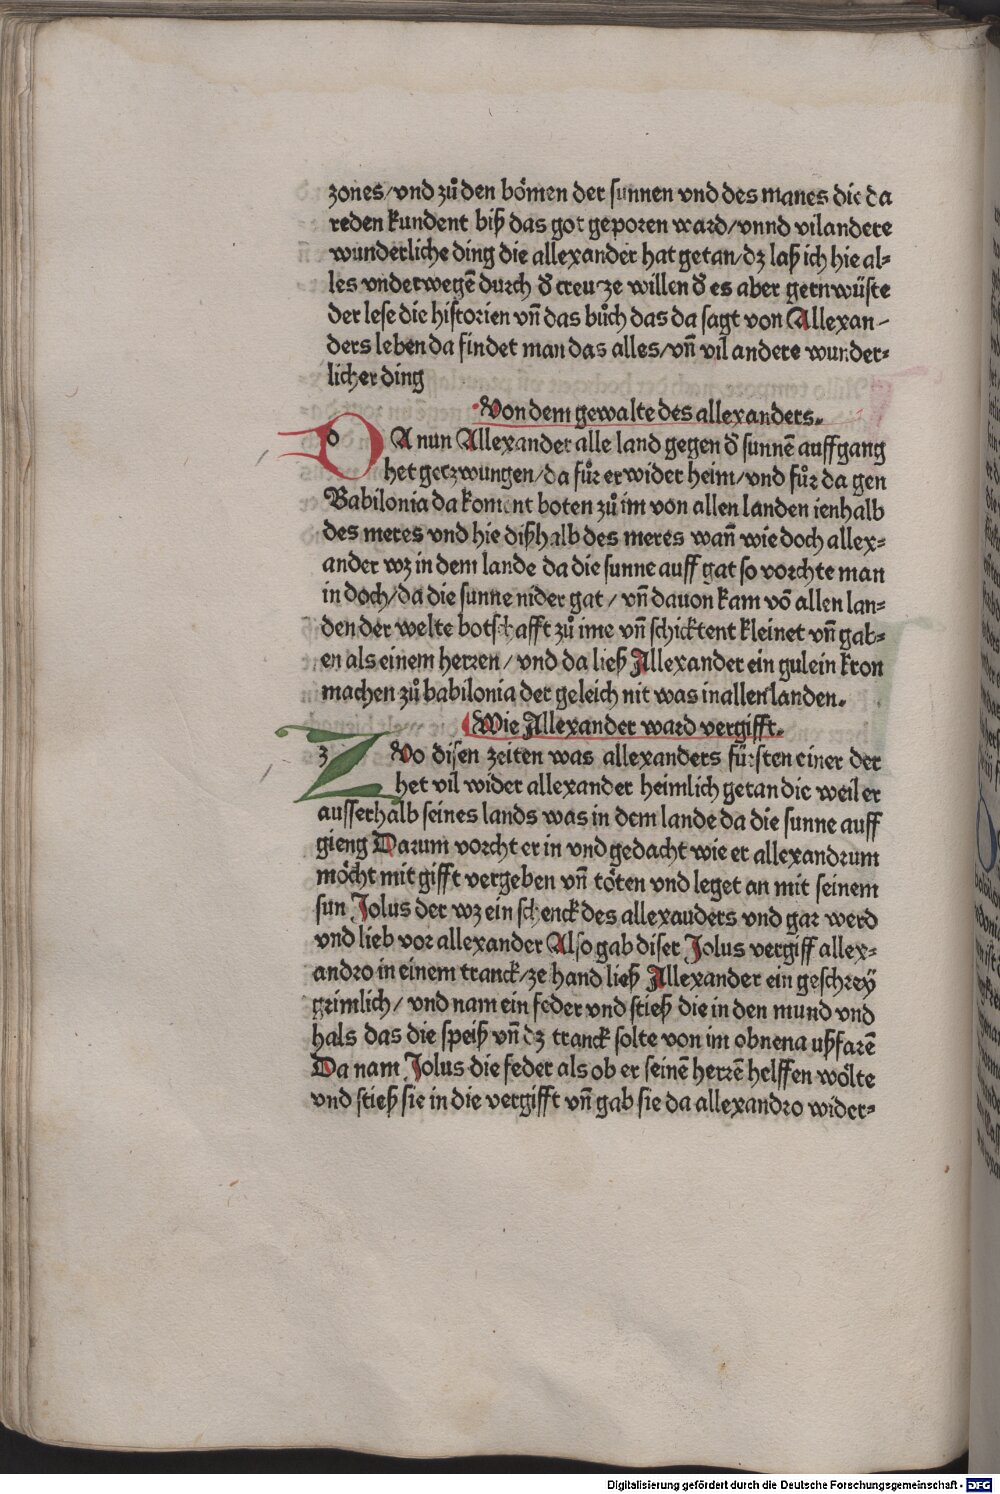 zones/vnd zů den bömen der sunnen vnd des manes die da
reden kundent biß das got geporen ward/vnnd vil andere
wunderliche ding die allexander hat getan/dz laß ich hie al=
les vnderwegē durch d̕ creutze willen d̕ es aber gern wüste
der lese die historien vn̄ das bůch das da sagt von Allexan-
ders leben da findet man das alles/vn̄ vil andere wunder=
licher ding
Von dem gewalte des allexanders.
DA nun Allexander alle land gegen d̕ sunnē auffgang
het getzwungen/da fůr er wider heim/vnd fůr da gen
Babilonia da koment boten zů im von allen landen ienhalb
des meres vnd hie dißhalb des meres wan̄ wie doch allex=
ander wz in dem lande da die sunne auff gat so vorchte man
in doch/da die sunne nider gat/vn̄ dauon kam vō allen lan=
den der welte botschafft zů ime vn̄ schicktent kleinet vn̄ gab=
en als einem herren/vnd da ließ Allexander ein gulein kron
machen zů babilonia der geleich nit was in allen landen.
Wie Allexander ward vergifft.
ZVo disen zeiten was allexanders fürsten einer der
het vil wider allexander heimlich getan die weil er
ausserhalb seines lands was in dem lande da die sunne auff
gieng Darum vorcht er in vnd gedacht wie er allexandrum
möcht mit gifft vergeben vn̄ töten vnd leget an mit seinem
sun Jolus der wz ein schenck des allexauders vnd gar werd
vnd lieb vor allexander Also gab diser Jolus vergiff allex=
andro in einem tranck/ze hand ließ Allexander ein geschreÿ
grimlich/vnd nam ein feder vnd stieß die in den mund vnd
hals das die speiß vn̄ dz tranck solte von im obnena ußfarē
Da nam Jolus die feder als ob er seinē herrē helffen wölte
vnd stieß sie in die vergifft vn̄ gab sie da allexandro wider=
Digitalisierung gefördert durch die Deutsche Forschungsgemeinschaft - DFG